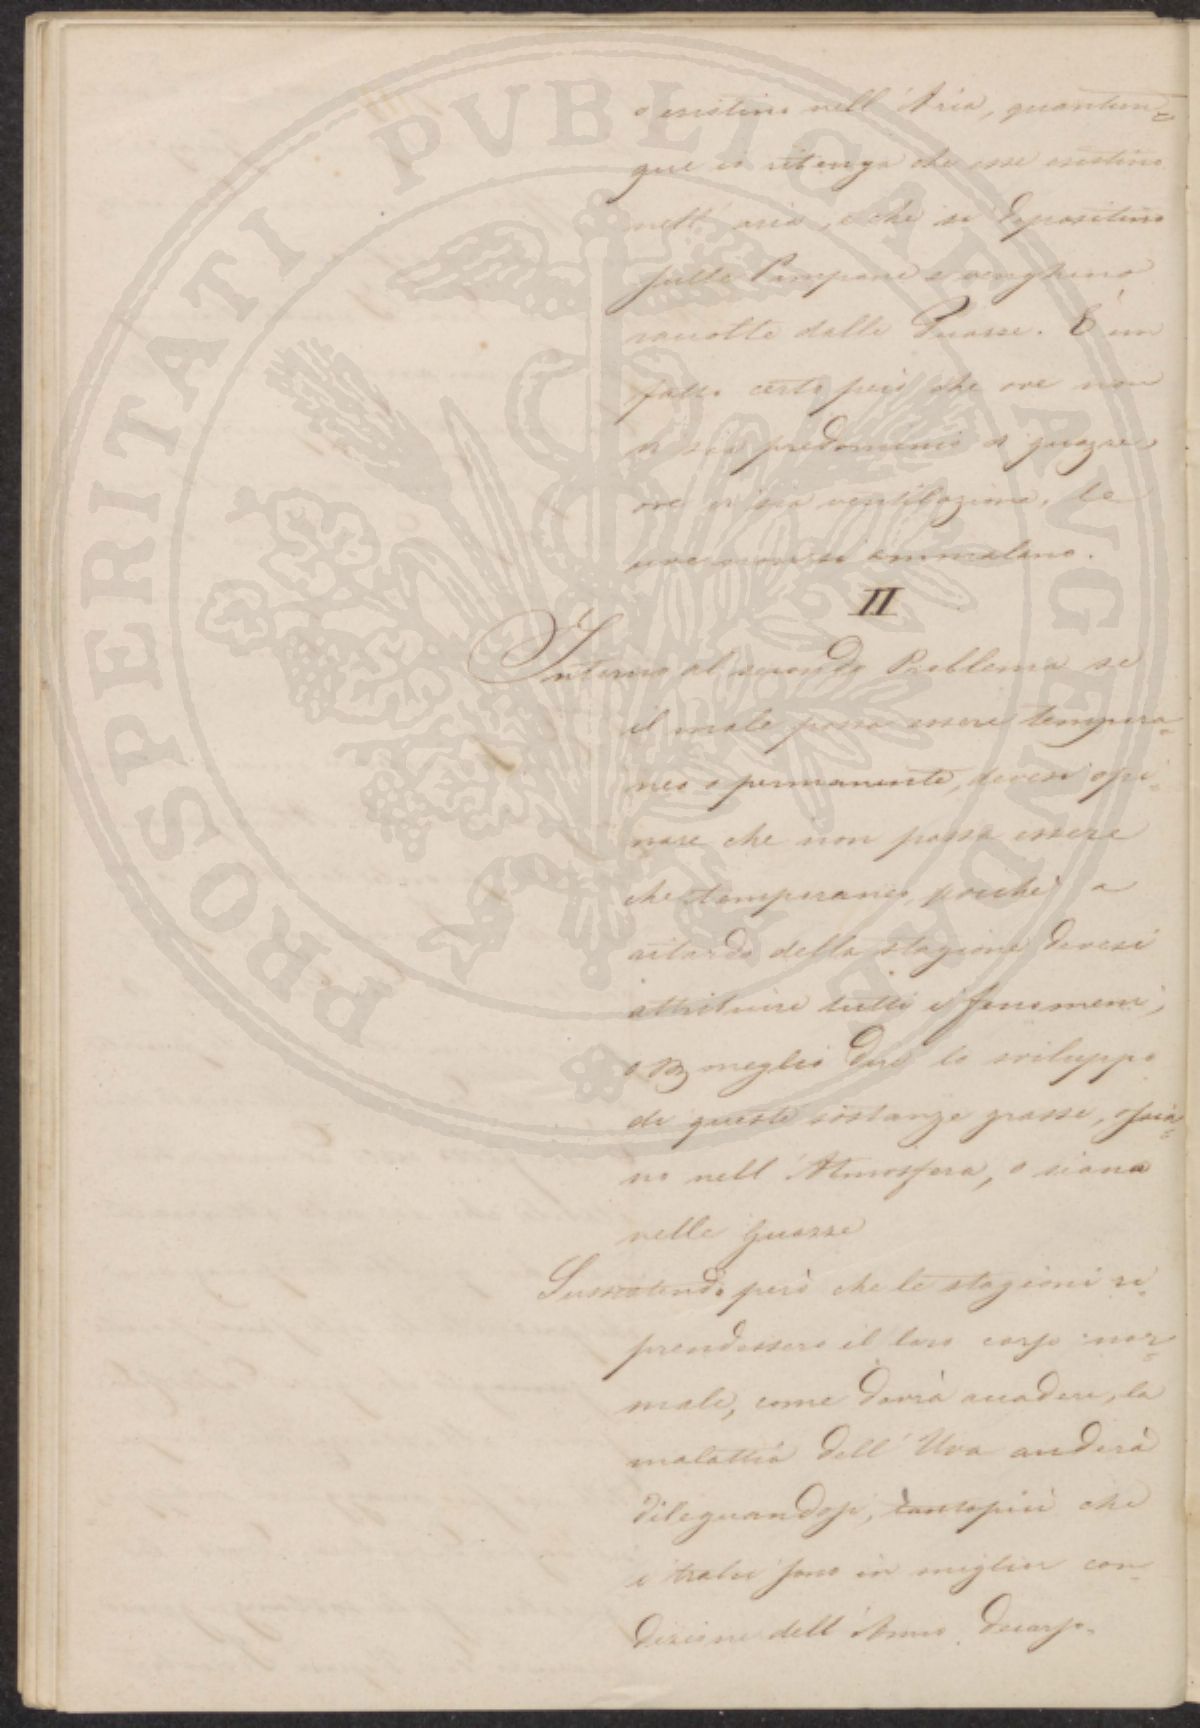 o esistino nell'Aria, quantun=
que io ritenga che esse esistino
nell'aria, e che si depositino
sulle Pampane e venghino
raccolte dalle Guazze. È un
fatto certo però che ove non
vi sia predominio di guazze,
ove vi sia ventilazione, le
uve non si ammalano.
II
Intorno al secondo Problema se
il male possa essere tempora=
neo o permanente, devesi opi=
nare che non possa essere
che temporaneo, poichè a
ritardo della stagione devesi
attribuire tutti i fenomeni,
o meglio dire lo sviluppo
di queste sostanze grasse, ossia=
no nell'Atmosfera, o siano
nelle Guazze
Sussistendo però che le stagioni ri=
prendessero il loro corso nor=
male, come dovrà accadere, la
malattia dell'Uva anderà
dileguandosi, tantopiù che
i tralci sono in miglior con=
dizione dell'Anno decorso.
PROSPERITATI PVBLICAE AVGENDAE